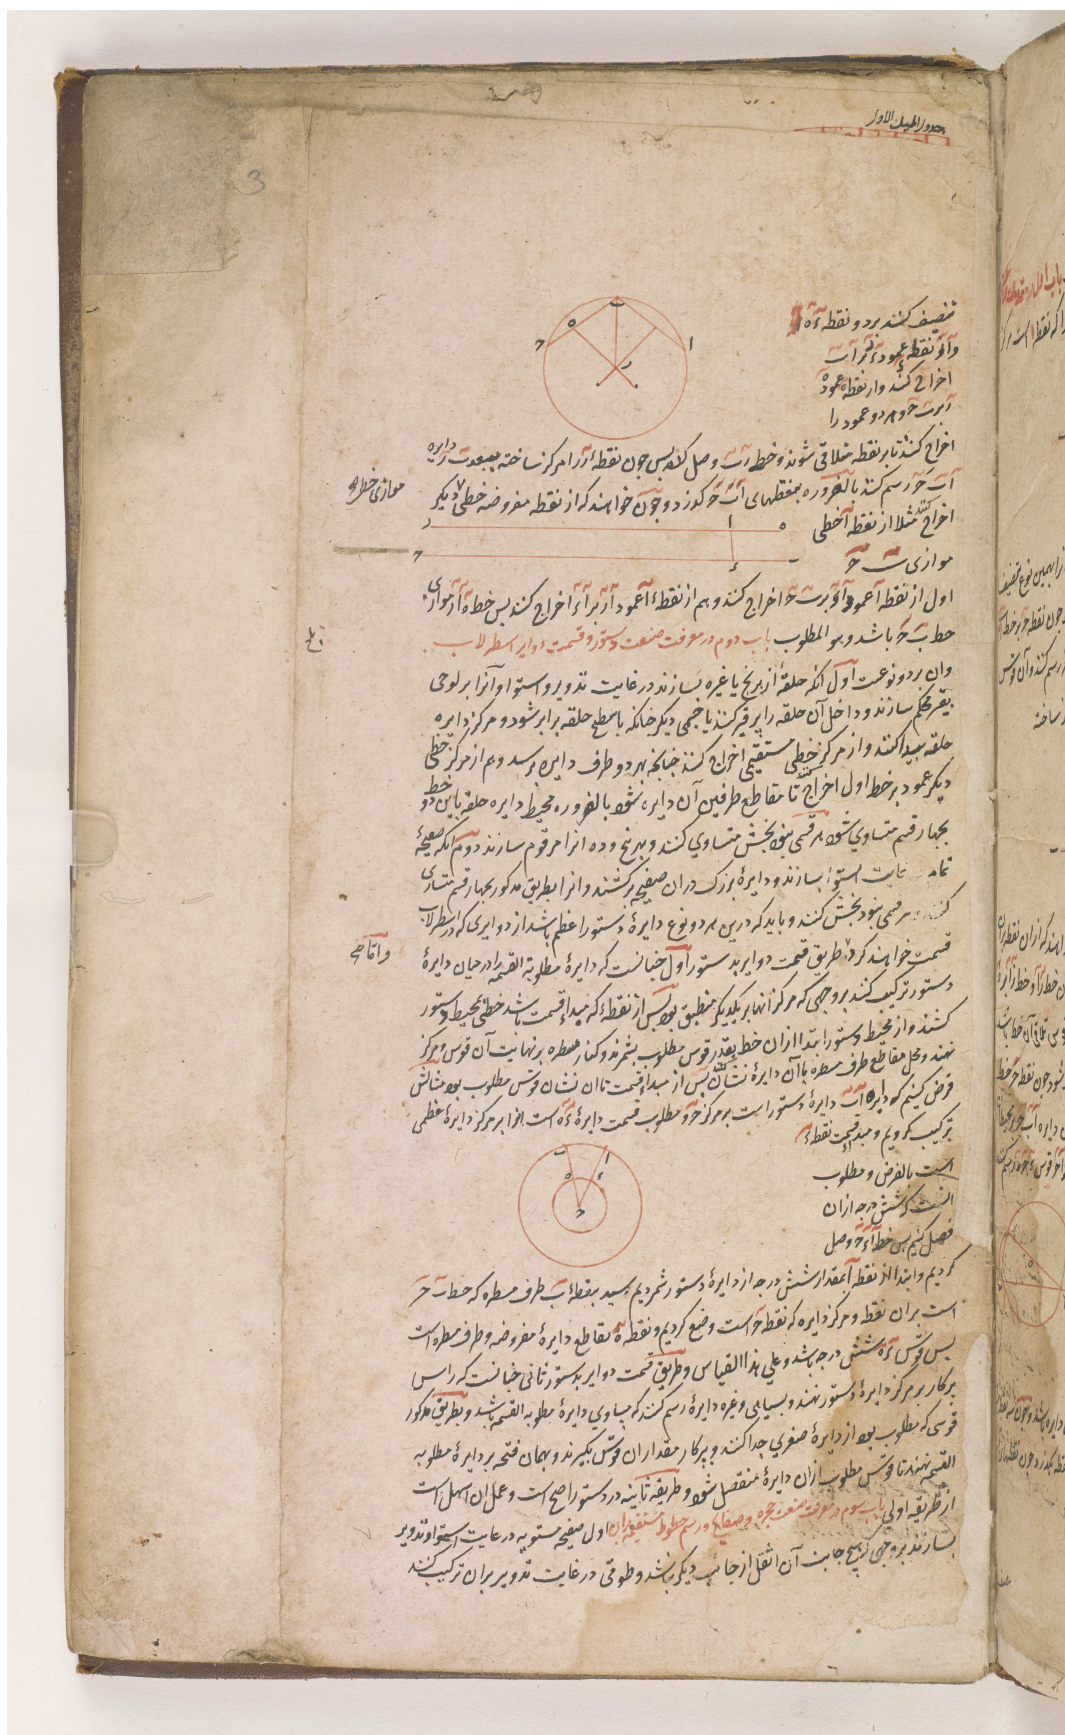 جدول المیل الاول
3
تنصیف کنند بر دو نقطه ءَ هَ
و از نقطه ءَ عمود ءَ رَ بر آبَ
اخراج کنند و از نقطه هَ عمود هَ
رَ بر بَ حَ و هر دو عمود را
اخراج کنند تا بر نقطه متلاقی شوند و خط رَبَ وصل کنند پس چون نقطه رَ را مرکز ساخته ببعد رَبَ دایره
آبَ حَ رسم کنند بالضروره بنقطهای آبَ حَ گذرد و چون خواهند که از نقطه مفروضه خطی دیگر
موازی خطی
اخراج کنند مثلا از نقطه آ خطی
موازی بَ حَ
اول از نقطه آ عمود آءَ بر بَ حَ اخراج کنند و هم از نقطه آ عمود آرَ بر آءَ اخراج کنند پس خط هَ آرَ موازی
خط بَ حَ باشد و هو المطلوب باب دوم در معرفت صنعت دستور و قسمت دوایر اسطرلاب
وان بر دو نوعست اول آنکه حلقهٔ از برنج یا غیره بسازند در غایت تدویر و استوا و آنرا بر لوحی
بقیر محکم سازند و داخل آن حلقه را پر قیر کنند یا جسمی دیگر چنانکه با سطح حلقه برابر شود و مرکز دایره
حلقه پیدا کنند و از مرکز خطی مستقیمی اخراج کنند چنانچه بهر دو طرف دایره برسد و هم از مرکز خطی
دیگر عمود بر خط اول اخراج کنند تا مقاطع طرفین آن دایره شود بالضروره محیط دایره حلقه باین دو خط
بچهار قسم متساوی شود هر قسمی بنود بخش متساوی کنند و بپنج و ده آنرا مرقوم سازند دوم آنکه صفیحهٔ
غایت استوا بسازند و دایرهٔ بزرگ در آن صفیحه برکشند و آنرا بطریق مذکور بچهار قسم متساوی
کنند و هر قسمی بنود بخش کنند و باید که درین هر دو نوع دایرهٔ دستور اعظم باشد از دوایری که در اسطرلاب
قسمت خواهند کرد طریق قسمت دوایر بدستور اول چنانست که دایرهٔ مطلوبة القسمه را در میان دایرهٔ
و اما
دستور ترکیب کنند بر وجهی که مرکز آنها بر یکدیگر منطبق بود پس از نقطه که مبداء قسمت باشد خطی بمحیط دستور
کشند و از محیط دستور ابتدا از آن خط بقدر قوس مطلوب بشمرند و کنار مسطره بر نهایت آن قوس و مرکز
نهند و محل مقاطع طرف مسطره با آن دایره نشان کنند پس از مبداء قسمت تا آن نشان قوس مطلوب بود مثالش
فرض کنیم که دایره آبَ دایرهٔ دستور است بر مرکز حَ و مطلوب قسمت دایرهٔ ءَهَ است آنرا بر مرکز دایرهٔ عظمی
ترکیب کردیم و مبداء قسمت نقطه ءَ
است بالفرض و مطلوب
آنست که شش درجه از آن
فصل کنیم پس خط آءَ حَ وصل
کردیم و ابتدا از نقطه آ بمقدار شش درجه از دایرهٔ دستور شمردیم رسید بنقطهٔ بَ طرف مسطره که خط بَ حَ
است بر آن نقطه و مرکز دایره که نقطه حَ است وضع کردیم و نقطه هَ تقاطع دایرهٔ مفروضه و طرف مسطره است
پس قوس ءَهَ شش درجه باشد و علی هذا القیاس و طریق قسمت دوایر بدستور ثانی چنانست که راس
پرکار بر مرکز دایرهٔ دستور نهند و بسیاهی و غیره دایرهٔ رسم کنند که مساوی دایرهٔ مطلوبه القسمه باشد و بطریق مذکور
قوسی که مطلوب بود از دایرهٔ صغری جدا کنند و بپرکار مقدار آن قوس بگیرند و بهمان فتحه بر دایرهٔ مطلوبه
القسمه نهند تا قوس مطلوب از آن دایرهٔ منفصل شود و طریقه ثانیه در دستور اصح است و عمل آن اسهل است
از طریقه اولی باب سوم در معرفت صنعت حجره و صفایح و رسم خطوط مستقیمه بر آن اول صفیحه مستویه در غایت استوا و تدویر
بسازند بر وجهی که هیچ جانب آن اثقل از جانب دیگر نباشد و طوقی در غایت تدویر بر آن ترکیب کنند